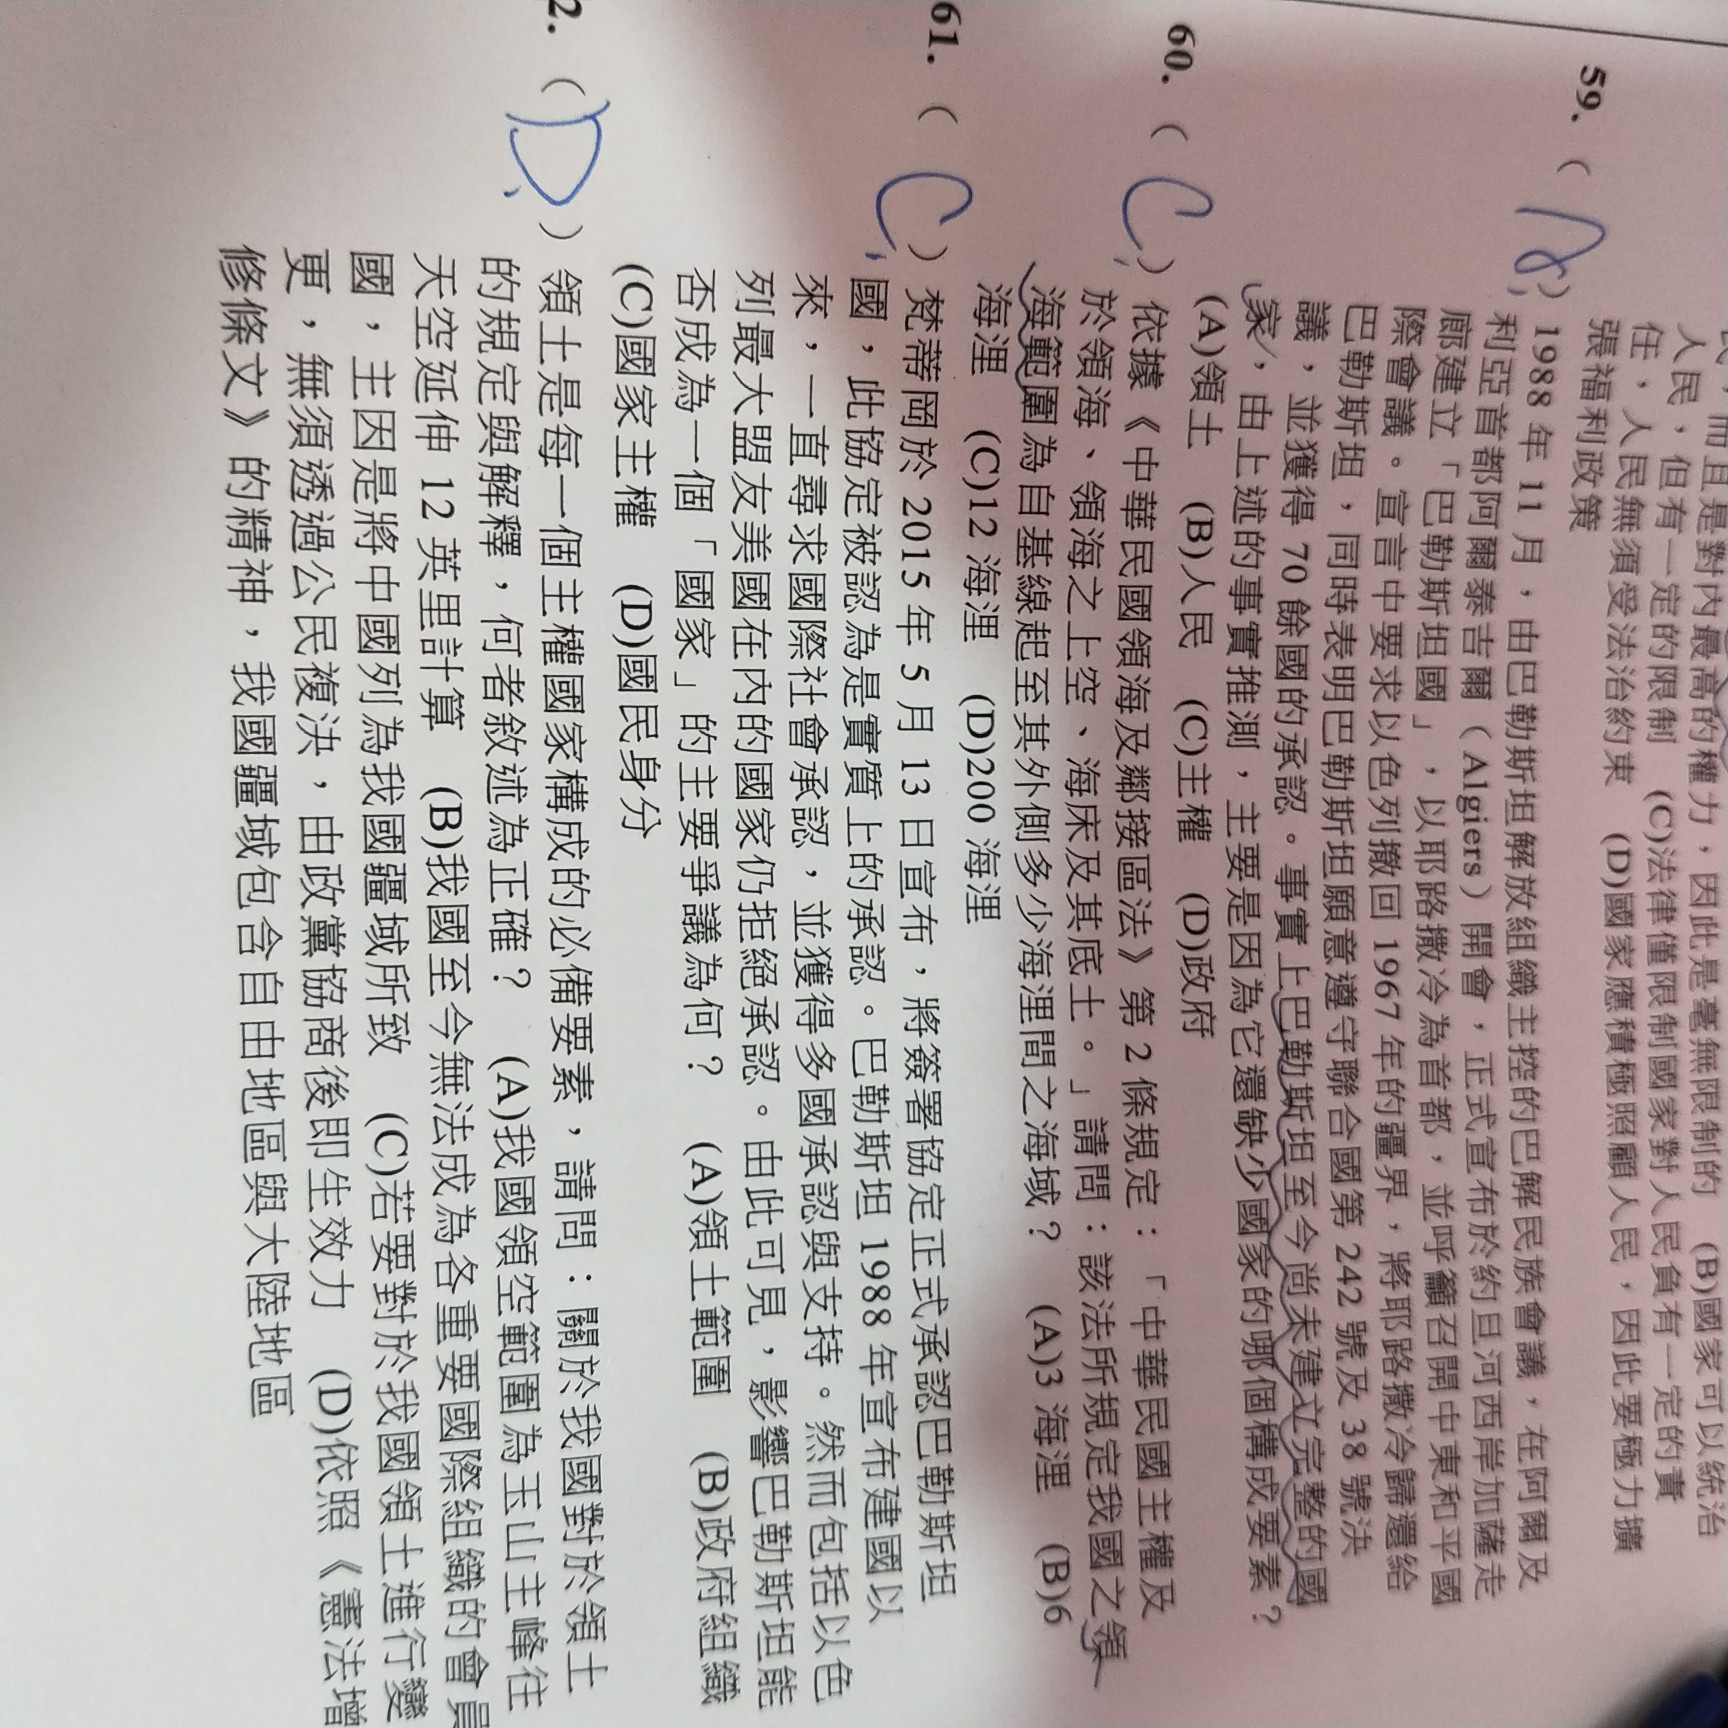 人民，但有一定的限制 (C)法律僅限制國家對人民負有一定的責
任，人民無須受法治約束 (D)國家應積極照顧人民，因此要極力擴
張福利政策
59. ( ) 1988 年 11 月，由巴勒斯坦解放組織主控的巴解民族會議，在阿爾及
利亞首都阿爾泰吉爾（Algiers）開會，正式宣布於約旦河西岸加薩走
廊建立「巴勒斯坦國」，以耶路撒冷為首都，並呼籲召開中東和平國
際會議。宣言中要求以色列撤回 1967 年的疆界，將耶路撒冷歸還給
巴勒斯坦，同時表明巴勒斯坦願意遵守聯合國第 242 號及 38 號決
議，並獲得 70 餘國的承認。事實上巴勒斯坦至今尚未建立完整的國
家，由上述的事實推測，主要是因為它還缺少國家的哪個構成要素？
(A)領土 (B)人民 (C)主權 (D)政府
60. (C) 依據《中華民國領海及鄰接區法》第 2 條規定：「中華民國主權及
於領海、領海之上空、海床及其底土。」請問：該法所規定我國之領
海範圍為自基線起至其外側多少海浬間之海域？ (A)3 海浬 (B)6
海浬 (C)12 海浬 (D)200 海浬
61. (C) 梵蒂岡於 2015 年 5 月 13 日宣布，將簽署協定正式承認巴勒斯坦
國，此協定被認為是實質上的承認。巴勒斯坦 1988 年宣布建國以
來，一直尋求國際社會承認，並獲得多國承認與支持。然而包括以色
列最大盟友美國在內的國家仍拒絕承認。由此可見，影響巴勒斯坦能
否成為一個「國家」的主要爭議為何？ (A)領土範圍 (B)政府組織
(C)國家主權 (D)國民身分
2. (D) 領土是每一個主權國家構成的必備要素，請問：關於我國對於領土
的規定與解釋，何者敘述為正確？ (A)我國領空範圍為玉山主峰往
天空延伸 12 英里計算 (B)我國至今無法成為各重要國際組織的會員
國，主因是將中國列為我國疆域所致 (C)若要對於我國領土進行變
更，無須透過公民複決，由政黨協商後即生效力 (D)依照《憲法增
修條文》的精神，我國疆域包含自由地區與大陸地區